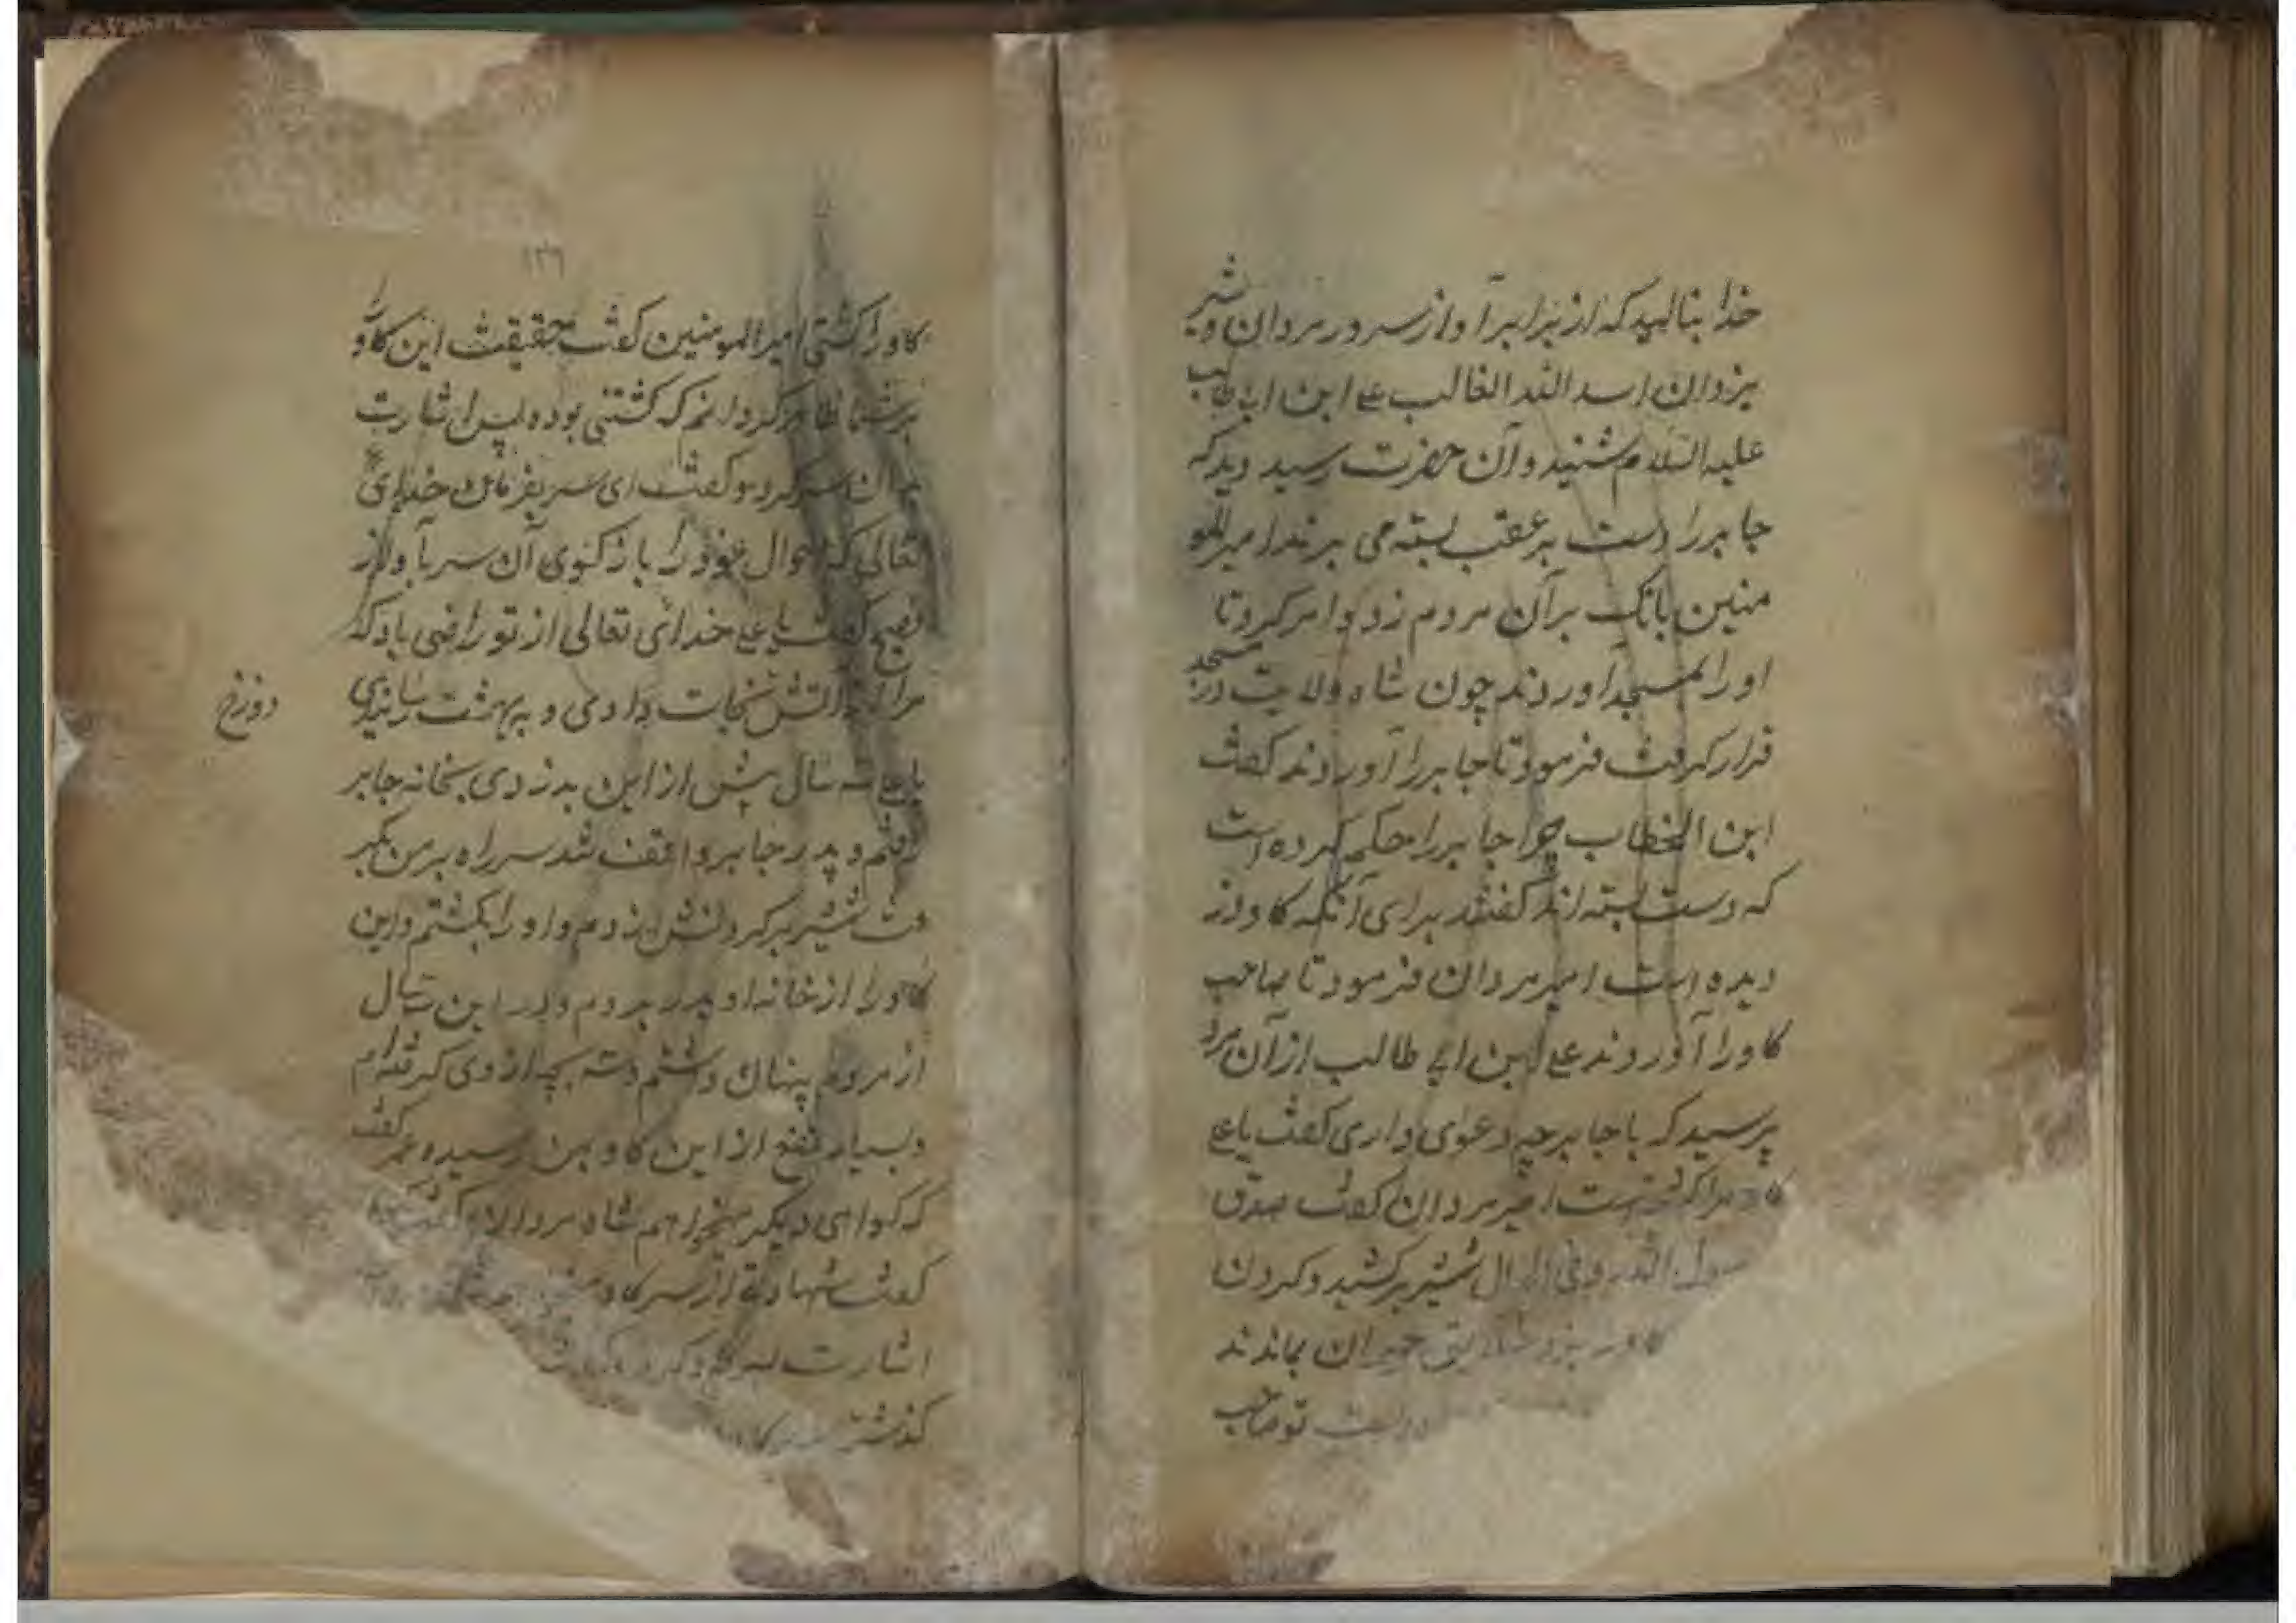 خدا بنالید که از برابر آواز سرور مردان و شیر
یزدان اسد الله الغالب علی ابن ابی طالب
علیه السلام شنید و آن حضرت رسید دید که
جابر را دست بر عقب بسته می برند امیر المو
منین بانک بر آن مردم زد و امر کرد تا
او را بمسجد اوردند چون شاه ولایت در مسجد
قرار کرفت فرمود تا جابر را آوردند کفت
ابن الخطاب چرا جابر را حکم کرده است
که دست بسته اند کفتند برای آنکه کاو دز
دیده است امیر مردان فرمود تا صاحب
کاو را آوردند علی ابن ابی طالب از آن مرد
پرسید که با جابر چه دعوی داری کفت یا علی
امیر مردان کفت صدق
رسول الله و فی الحال شمشیر برکشید و کردن
کاو حیران بماندند
تو صاحب
۱۳۶
کاو را کشتی امیر المومنین کفت حقیقت این کاو را
بر شما ظاهر کردانم که کشتنی بوده پس اشارت
بدان سر کرد و کفت ای سر بفرمان خدای
تعالی که احوال خود را باز کوی آن سر بآواز
فصیح کفت یا علی خدای تعالی از تو راضی باد که
مرا از آتش نجات دادی و به بهشت رسانیدی
دوزخ
یا علی سه سال پیش از این بدزدی بخانه جابر
رفتم و پدر جابر واقف شد سر راه بر من بکر
فت شمشیر بر کردنش زدم و او را بکشتم و این
کاو را از خانه او بدر بردم و در این سه سال
از مردم پنهان داشتم و سه بچه از وی کرفته ام
و بسیار نفع از این کاو بمن رسیده عمر کفت
که کواهی دیکر میخواهم شاه مردان
کفت شهادتی از سر کاو
اشارت
کذشته